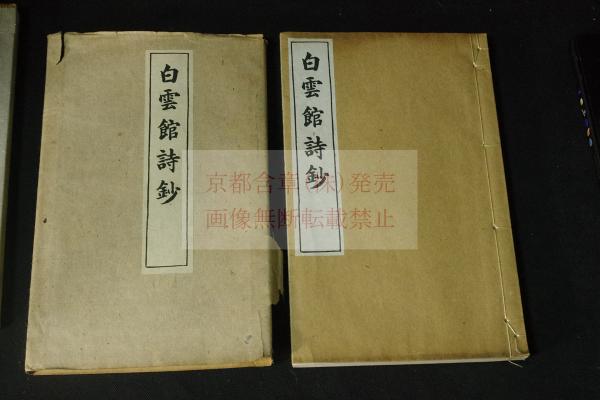 白雲館詩鈔
白雲館詩鈔
京都含章(株)発売
画像無断転載禁止